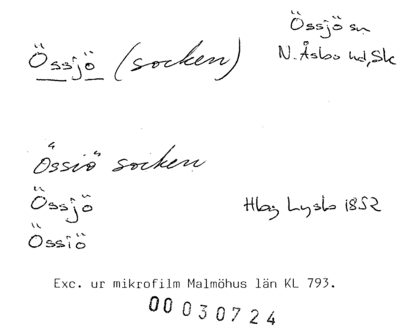 Össjö sn
Össjö (socken)
N. Åsbo hd, Sk
Össiö socken
Össjö
Hlag Lysbo 1852
Össiö
Exc. ur mikrofilm Malmöhus län KL 793.
00030724